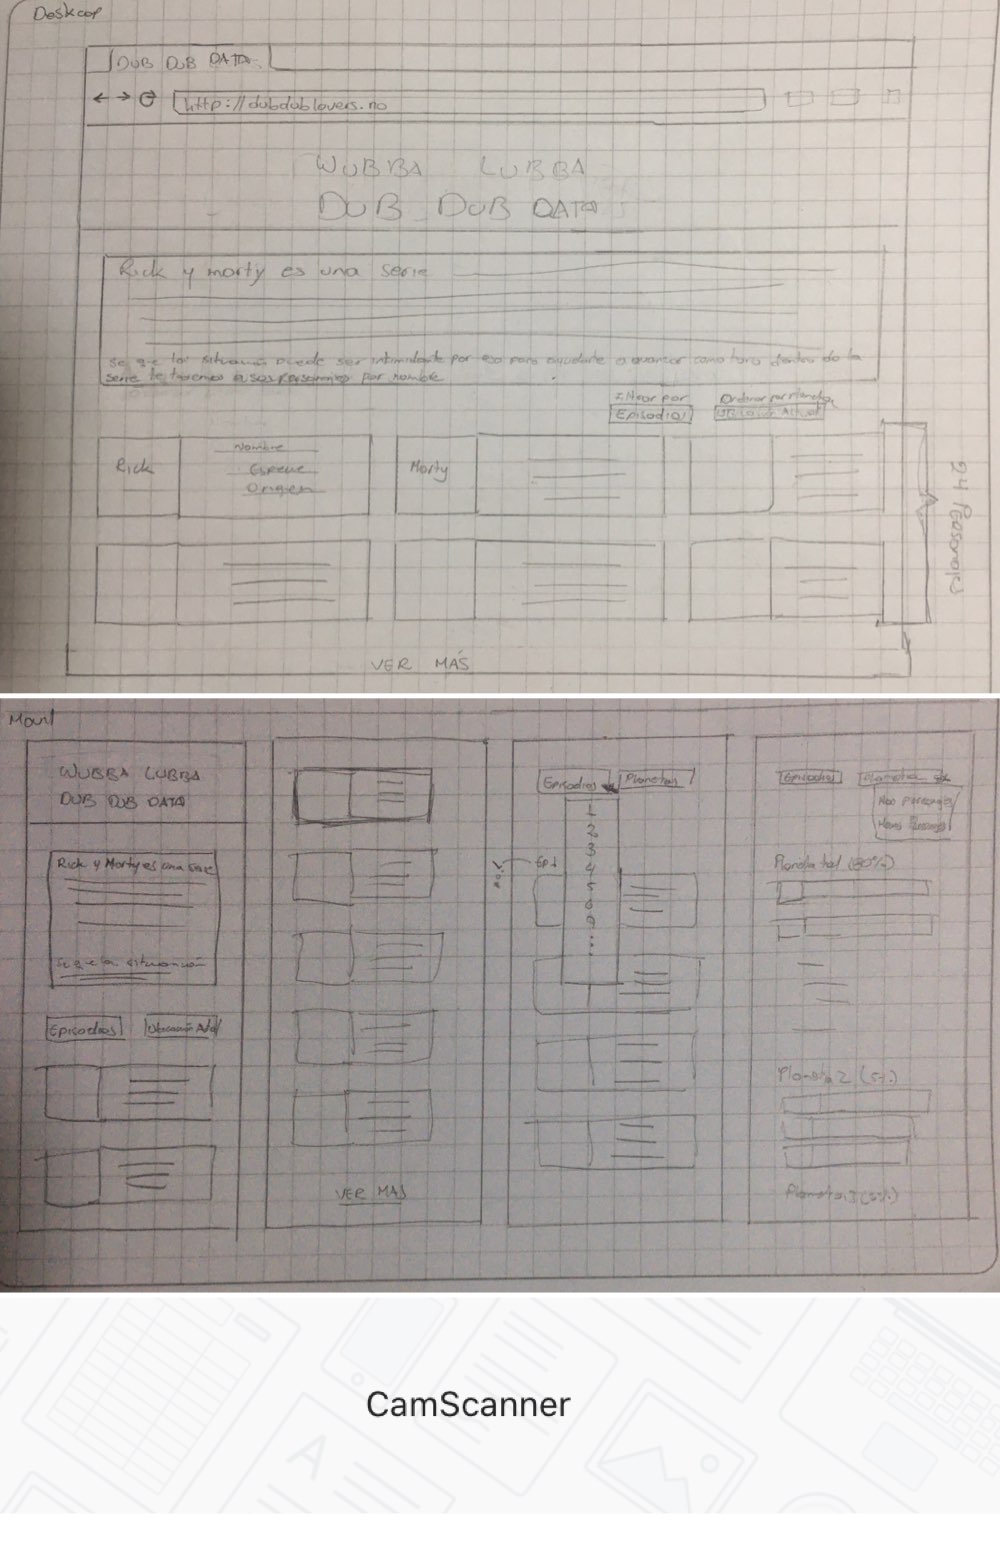 Deskcop
DUB DUB DATA
http://dubdublovers.no
WUBBA LUBBA
DUB DUB DATA
Rick y morty es una serie
Se que la situación puede ser intimidante por eso para ayudarte a avanzar como dentro de la
serie te personajes por nombre
Filtrar por
Ordenar por Planeta
Episodios
Rick
Nombre
Especie
Origen
Morty
24 Personajes
VER MÁS
Movil
WUBBA LUBBA
DUB DUB DATA
Rick y Morty es una serie
Se que la situación
Episodios
VER MAS
Episodios
Planetas
1
2
3
4
5
6
Ep 1
Episodios
Planetas
Mas personajes
Menos Personajes
Planeta 1 (80%)
Planeta 2 (5%)
Planeta 3 (5%)
CamScanner